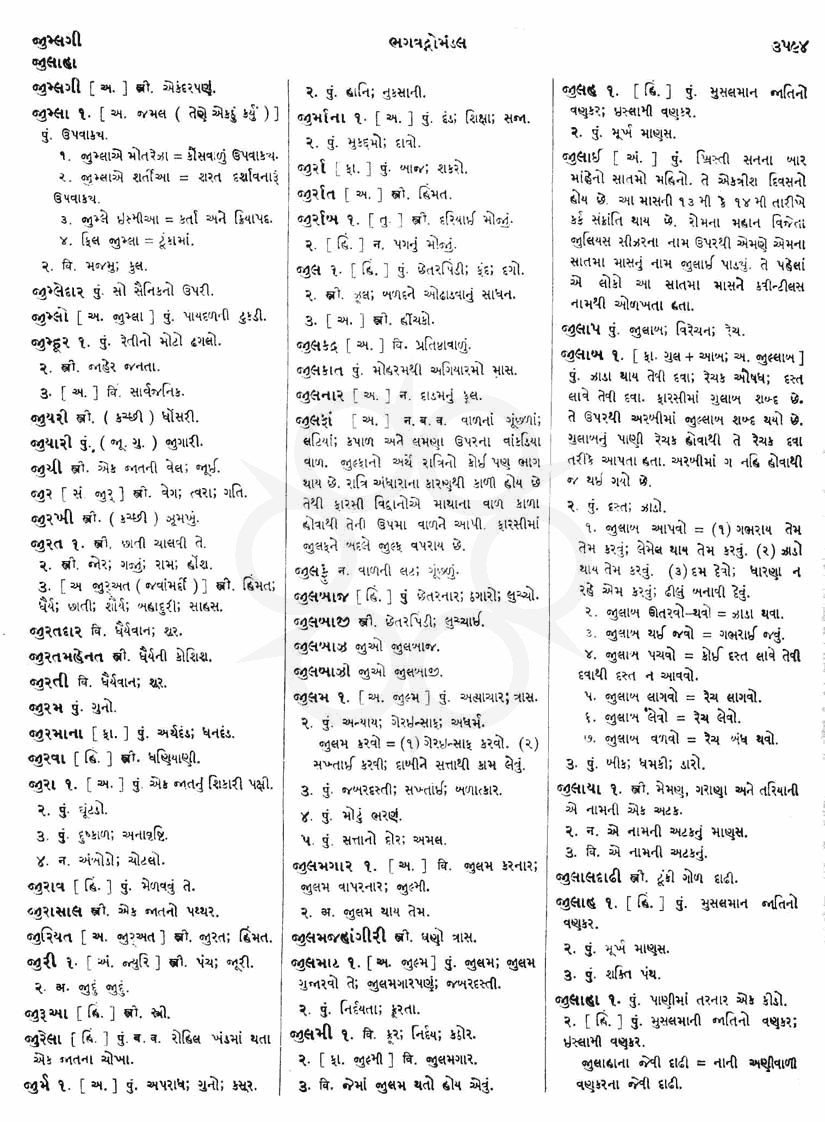 જુમ્લગી
જુલાહા
ભગવદ્ગોમંડલ
૩૫૯૪
જુમ્લગી [ અ. ] સ્ત્રી. એકંદરપણું.
જુમ્લા ૧. [ અ. જમલ ( તેણે એકઠું કર્યું ) ]
પું. ઉપવાકય.
૧. જુમ્લાએ મોતરેઝા = કૌંસવાળું ઉપવાકય.
૨. જુમ્લાએ શર્તીઆ = શરત દર્શાવનારૂં
ઉપવાકય.
૩. જુમ્લે ઇસ્મીઆ = કર્તા અને ક્રિયાપદ.
૪. ફિલ જુમ્લા = ટૂંકામાં.
૨. વિ. મજમુ; કુલ.
જુમ્લેદાર પું. સો સૈનિકનો ઉપરી.
જુમ્લો [ અ. જુમ્લા ] પું. પાયદળની ટુકડી.
જુમ્હૂર ૧. પું. રેતીનો મોટો ઢગલો.
૨. સ્ત્રી. જાહેર જનતા.
૩. [ અ. ] વિ. સાર્વજનિક.
જુયરી સ્ત્રી. ( કચ્છી ) ધોંસરી.
જુયારી પું. ( જૂ. ગુ. ) જુગારી.
જુયી સ્ત્રી. એક જાતની વેલ; જૂઈ.
જુર [ સં. જુર્ ] સ્ત્રી. વેગ; ત્વરા; ગતિ.
જુરખી સ્ત્રી. ( કચ્છી ) ઝૂમખું.
જુરત ૧. સ્ત્રી. છાતી ચાલવી તે.
૨. સ્ત્રી. જોર; ગજું; રામ; હોંશ.
૩. [ અ જુર્અત ( જવાંમર્દી ) ] સ્ત્રી. હિંમત;
ધૈર્ય; છાતી; શૌર્ય; બહાદુરી; સાહસ.
જુરતદાર વિ. ધૈર્યવાન; શૂર.
જુરતમહેનત સ્ત્રી. ધૈર્યની કોશિશ.
જુરતી વિ. ધૈર્યવાન; શૂર.
જુરમ પું. ગુનો.
જુરમાના [ ફા. ] પું. અર્થદંડ; ધનદંડ.
જુરવા [ હિં. ] સ્ત્રી. ધણિયાણી.
જુરા ૧. [ અ. ] પું. એક જાતનું શિકારી પક્ષી.
૨. પું. ઘૂંટડો.
૩. પું. દુષ્કાળ; અનાવૃષ્ટિ.
૪. ન. અંબોડો; ચોટલો.
જુરાવ [ હિં. ] પું. મેળવવું તે.
જુરાસાલ સ્ત્રી. એક જાતનો પથ્થર.
જુરિયત [ અ. જુર્અત ] સ્ત્રી. જુરત; હિંમત.
જુરી ૧. [ અં. જ્યુરિ ] સ્ત્રી. પંચ; જૂરી.
૨. અ. જુદું જુદું.
જુરૂઆ [ હિં. ] સ્ત્રી. સ્ત્રી.
જુરેલા [ હિં. ] પું. બ. વ. રોહિલ ખંડમાં થતા
એક જાતના ચોખા.
જુર્મ ૧. [ અ. ] પું. અપરાધ; ગુનો; કસૂર.
૨. પું. હાનિ; નુકસાની.
જુર્માના ૧. [ અ. ] પું. દંડ; શિક્ષા; સજા.
૨. પું. મુકદ્દમો; દાવો.
જુર્રા [ ફા. ] પું. બાજ; શકરો.
જુર્રાત [ અ. ] સ્ત્રી. હિંમત.
જુર્રાબ ૧. [ તુ. ] સ્ત્રી. દરિયાઈ મોજું.
૨. [ હિં. ] ન. પગનું મોજું.
જુલ ૧. [ હિં. ] પું. છેતરપિંડી; ફંદ; દગો.
૨. સ્ત્રી. ઝૂલ; બળદને ઓઢાડવાનું સાધન.
૩. [ અ. ] સ્ત્રી. હીંચકો.
જુલકદ્ર [ અ. ] વિ. પ્રતિષ્ઠાવાળું.
જુલકાત પું. મોહરમથી અગિયારમો માસ.
જુલનાર [ અ. ] ન. દાડમનું ફૂલ.
જુલફાં [ અ. ] ન. બ. વ. વાળનાં ગૂંછળાં;
લટિયાં; કપાળ અને લમણા ઉપરના વાંકડિયા
વાળ. જુલ્ફાનો અર્થ રાત્રિનો કોઈ પણ ભાગ
થાય છે. રાત્રિ અંધારાના કારણુથી કાળી હોય છે
તેથી ફારસી વિદ્વાનોએ માથાના વાળ કાળા
હોવાથી તેની ઉપમા વાળને આપી. ફારસીમાં
જુલફને બદલે જુલ્ફ વપરાય છે.
જુલફું ન. વાળની લટ; ગૂંછળું.
જુલબાજ [ હિં. ] પું છેતરનાર; ઠગારો; લુચ્ચો.
જુલબાજી સ્ત્રી. છેતરપિંડી; લુચ્ચાઈ.
જુલબાઝ જુઓ જુલબાજ.
જુલબાઝી જુઓ જુલબાજી.
જુલમ ૧. [ અ. જુલ્મ ] પું. અત્યાચાર; ત્રાસ.
૨. પું. અન્યાય; ગેરઇન્સાફ; અધર્મ.
જુલમ કરવો = (૧) ગેરઇન્સાફ કરવો. (૨)
સખ્તાઈ કરવી; દાબીને સત્તાથી કામ લેવું.
૩. પું. જબરદસ્તી; સખ્તાઈ; બળાત્કાર.
૪. પું. મોઢું ભરણું.
૫. પું. સત્તાનો દોર; અમલ.
જુલમગાર ૧. [ અ. ] વિ. જુલમ કરનાર;
જુલમ વાપરનાર; જુલ્મી.
૨. અ. જુલમ થાય તેમ.
જુલમજહાંગીરી સ્ત્રી. ઘણો ત્રાસ.
જુલમાટ ૧. [ અ. જુલ્મ ] પું. જુલમ; જુલમ
ગુજારવો તે; જુલમગારપણું; જબરદસ્તી.
૨. પું. નિર્દયતા; ક્રૂરતા.
જુલમી ૧. વિ. ક્રૂર; નિર્દય; કઠોર.
૨. [ ફા. જુલ્મી ] વિ. જુલમગાર.
૩. વિ. જેમાં જુલમ થતો હોય એવું.
જુલહ ૧. [ હિં. ] પું. મુસલમાન જાતિનો
વણકર; ઇસ્લામી વણકર.
૨. પું. મૂર્ખ માણસ.
જુલાઈ [ અં. ] પું. ખ્રિસ્તી સનના બાર
માંહેનો સાતમો મહિનો. તે એકત્રીશ દિવસનો
હોય છે. આ માસની ૧૩ મી કે ૧૪ મી તારીખે
કર્ક સંક્રાંતિ થાય છે. રોમના મહાન વિજેતા
જુલિયસ સીઝરના નામ ઉપરથી એમણે એમના
સાતમા માસનું નામ જુલાઈ પાડયું. તે પહેલાં
એ લોકો આ સાતમા માસને કવીન્ટીલસ
નામથી ઓળખતા હતા.
જુલાપ પું. જુલાબ; વિરેચન; રેચ.
જુલાબ ૧. [ ફા. ગુલ + આબ; અ. જુલ્લાબ ]
પું. ઝાડા થાય તેવી દવા; રેચક ઔષધ; દસ્ત
લાવે તેવી દવા. ફારસીમાં ગુલાબ શબ્દ છે.
તે ઉપરથી અરબીમાં જુલ્લાબ શબ્દ થયો છે.
ગુલાબનું પાણી રેચક હોવાથી તે રેચક દવા
તરીકે આપતા હતા. અરબીમાં ગ નહિ હોવાથી
જ થઈ ગયો છે.
૨. પું. દસ્ત; ઝાડો.
૧. જુલાબ આપવો = (૧) ગભરાય તેમ
તેમ કરવું; લેમેલ થાય તેમ કરવું. (૨) ઝાડો
થાય તેમ કરવું. (૩) દમ દેવો; ધારણા ન
રહે એમ કરવું; ઢીલું બનાવી દેવું.
૨. જુલાબ ઊતરવો–થવો = ઝાડા થવા.
૩. જુલાબ થઈ જવો = ગભરાઈ જવું.
૪. જુલાબ પચવો = કોઈ દસ્ત લાવે તેવી
દવાથી દસ્ત ન આવવો.
૫. જુલાબ લાગવો = રેચ લાગવો.
૬. જુલાબ લેવો = રેચ લેવો.
૭. જુલાબ વળવો = રેચ બંધ થવો.
૩. પું. બીક; ધમકી; ડારો.
જુલાયા ૧. સ્ત્રી. મેમણ, ગરાણા અને તરિયાની
એ નામની એક અટક.
૨. ન. એ નામની અટકનું માણસ.
૩. વિ. એ નામની અટકનું.
જુલાલદાઢી સ્ત્રી. ટૂંકી ગોળ દાઢી.
જુલાહ ૧. [ હિં. ] પું. મુસલમાન જાતિનો
વણકર.
૨. પું. મૂર્ખ માણસ.
૩. પું. શક્તિ પંથ.
જુલાહા ૧. પું. પાણીમાં તરનાર એક કીડો.
૨. [ હિં. ] પું. મુસલમાની જાતિનો વણકર;
ઇસ્લામી વણકર.
જુલાહાના જેવી દાઢી = નાની અણીવાળી
વણકરના જેવી દાઢી.